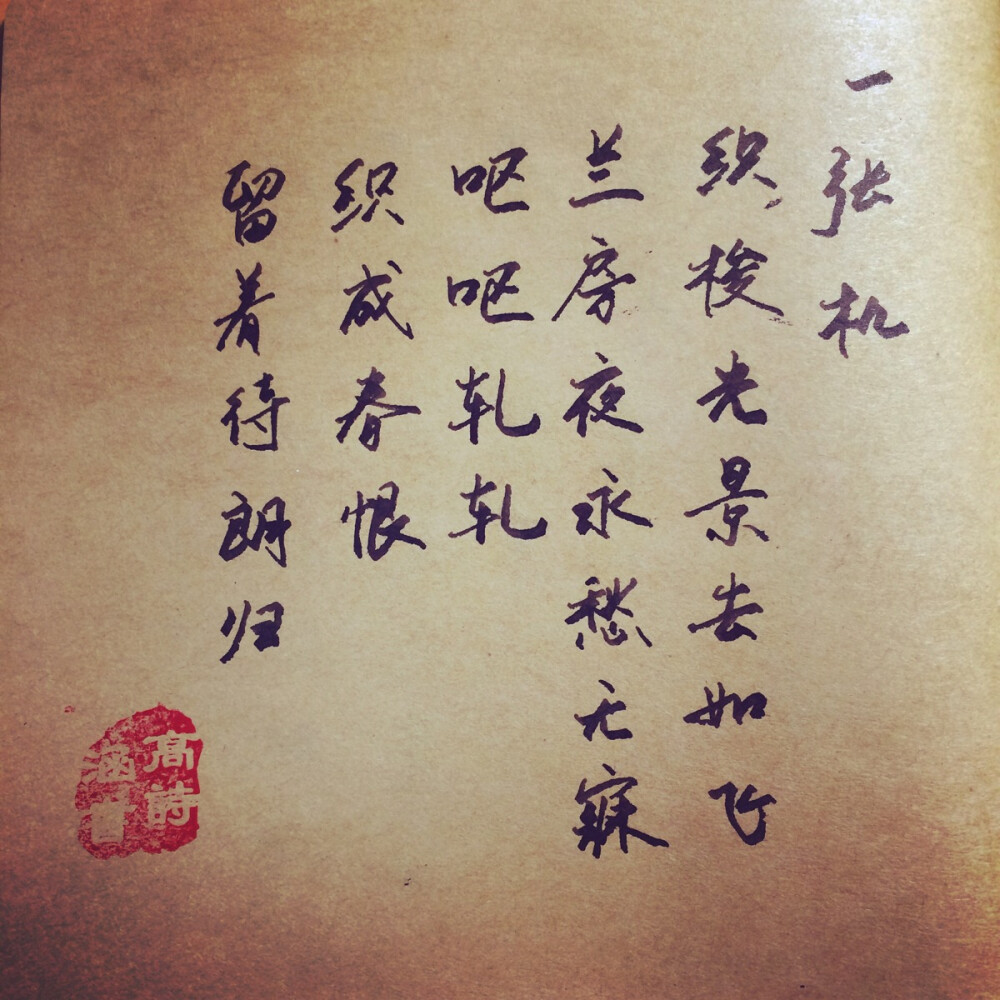 一张机
织梭光景去如飞
兰房夜永愁无寐
呕呕轧轧
织成春恨
留着待朗归
高诗
涵书